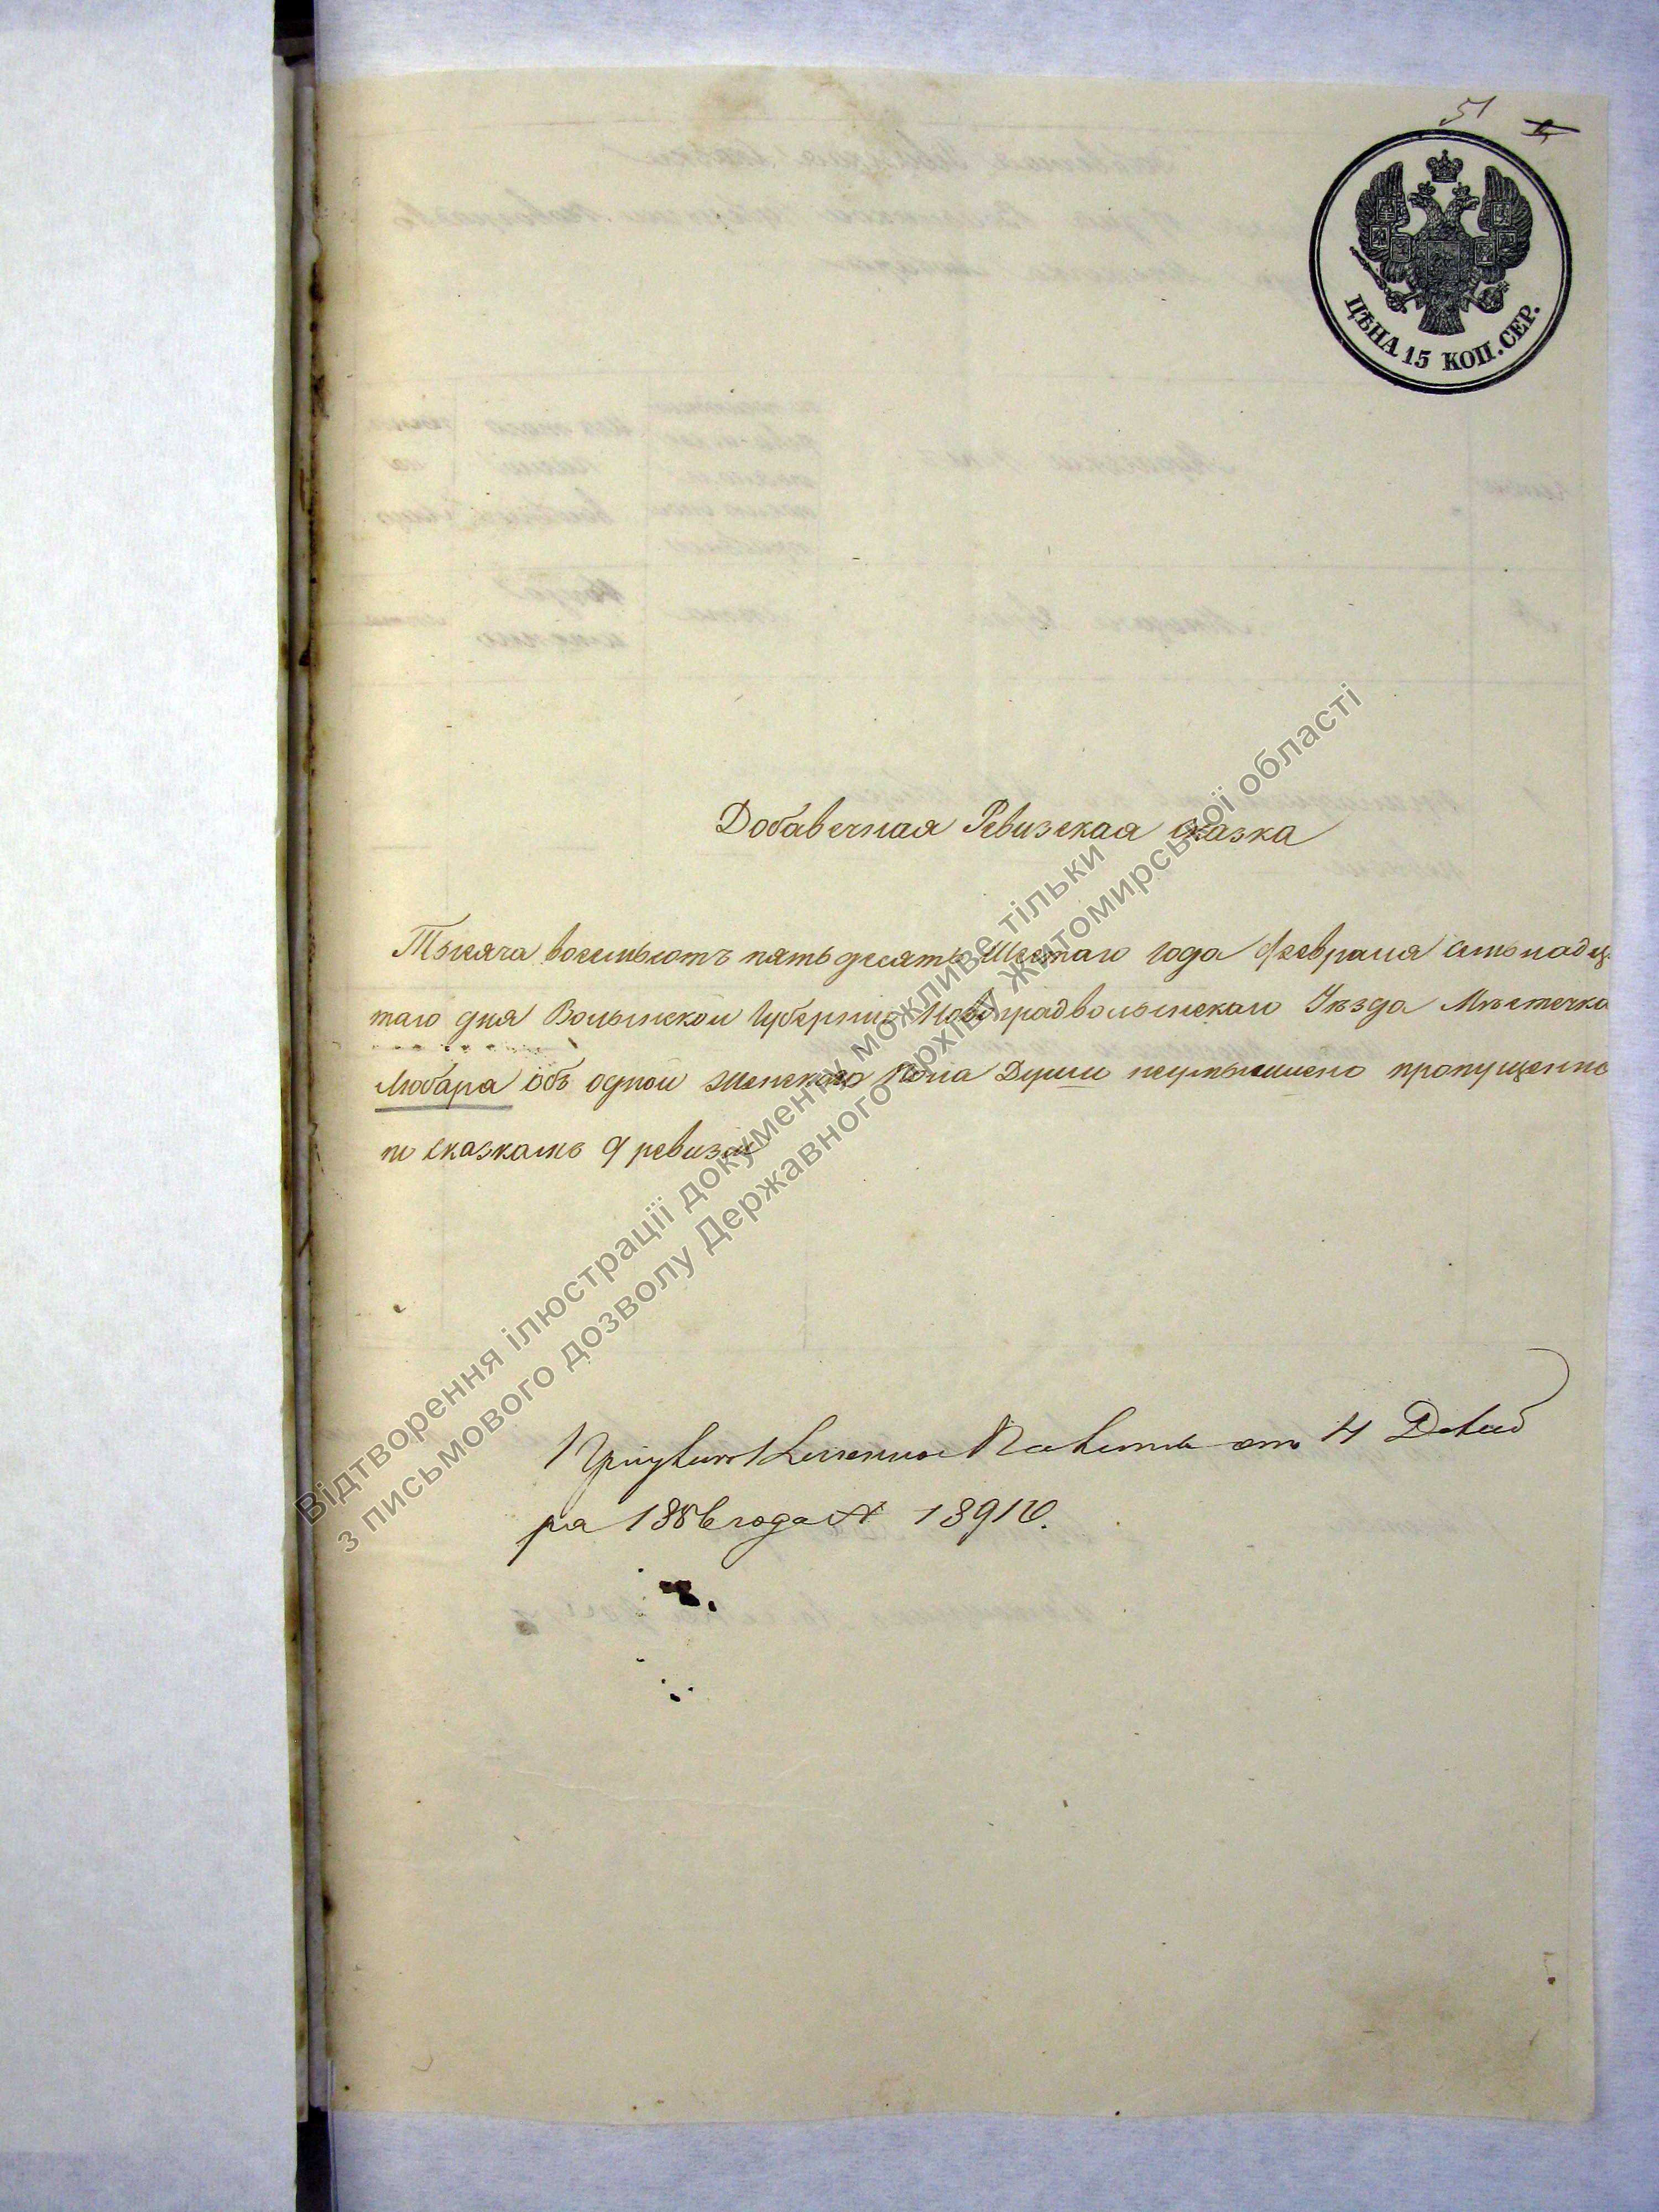 51
ЦѢНА 15 КОП. СЕР.
Добавочная Ревизская сказка
Тысяча восемьсотъ пятьдесятъ Шестаго года Февраля семнадца
таго дня Волынской Губерніи Новоградволынскаго Уѣзда Мѣстечка
Любара объ одной Женскаго Пола Души неумышлено пропущенно
по сказкамъ 9 ревизіи
от 4 Декаб
ра 1856 года № 13910.
Відтворення ілюстрації документу можливе тільки
з письмового дозволу Державного архіву Житомирської області